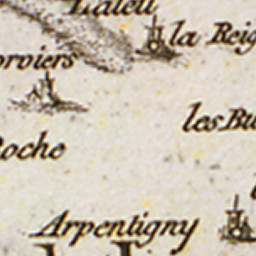 la Reig
orviers
les Bu
Roche
Arpentigny